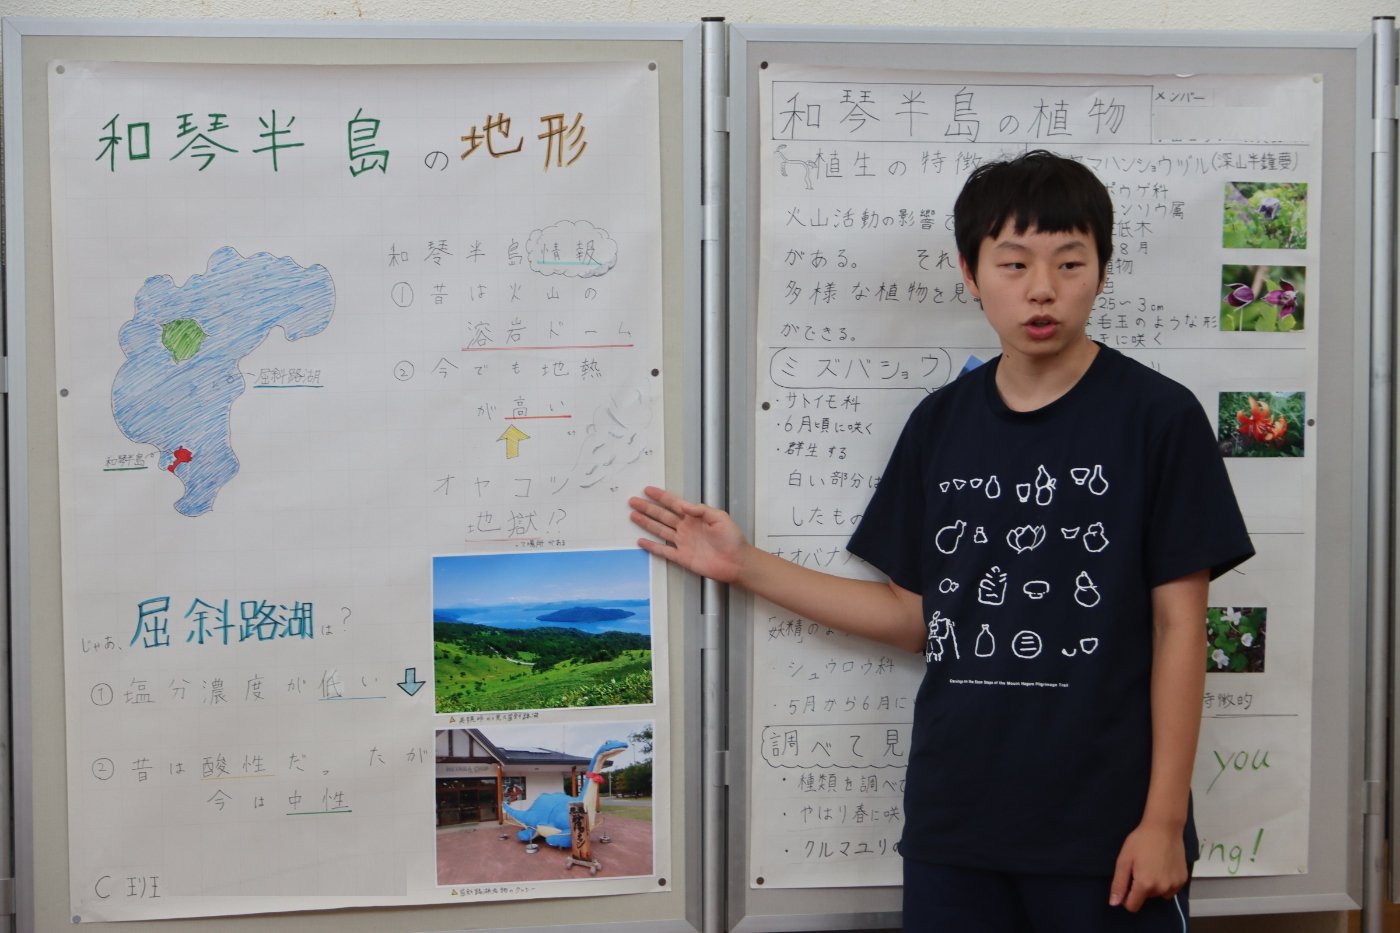 和琴半島の地形
和琴半島情報
① 昔は火山の
溶岩ドーム
② 今でも地熱
が高い
オヤコツ
地獄!?
屈斜路湖
和琴半島
じゃあ、屈斜路湖は?
① 塩分濃度が低い
② 昔は酸性だったが
今は中性
C班
和琴半島の植物
メンバー
植生の特徴
火山活動の影響で
がある。 それ
多様な植物を見
ができる。
ミズバショウ
・サトイモ科
・6月頃に咲く
・群生する
白い部分は
したもの
オオバナノ
「妖精」のよう
・シュウロウ科
・5月から6月に
調べて見
・種類を調べて
やはり春に咲
・クルマユリの
ヤマハンショウヅル(深山半鐘蔓)
ポウゲ科
ンソウ属
低木
8月
植物
色
25〜3cm
な毛玉のような形
に咲く
特徴的
you
ing!